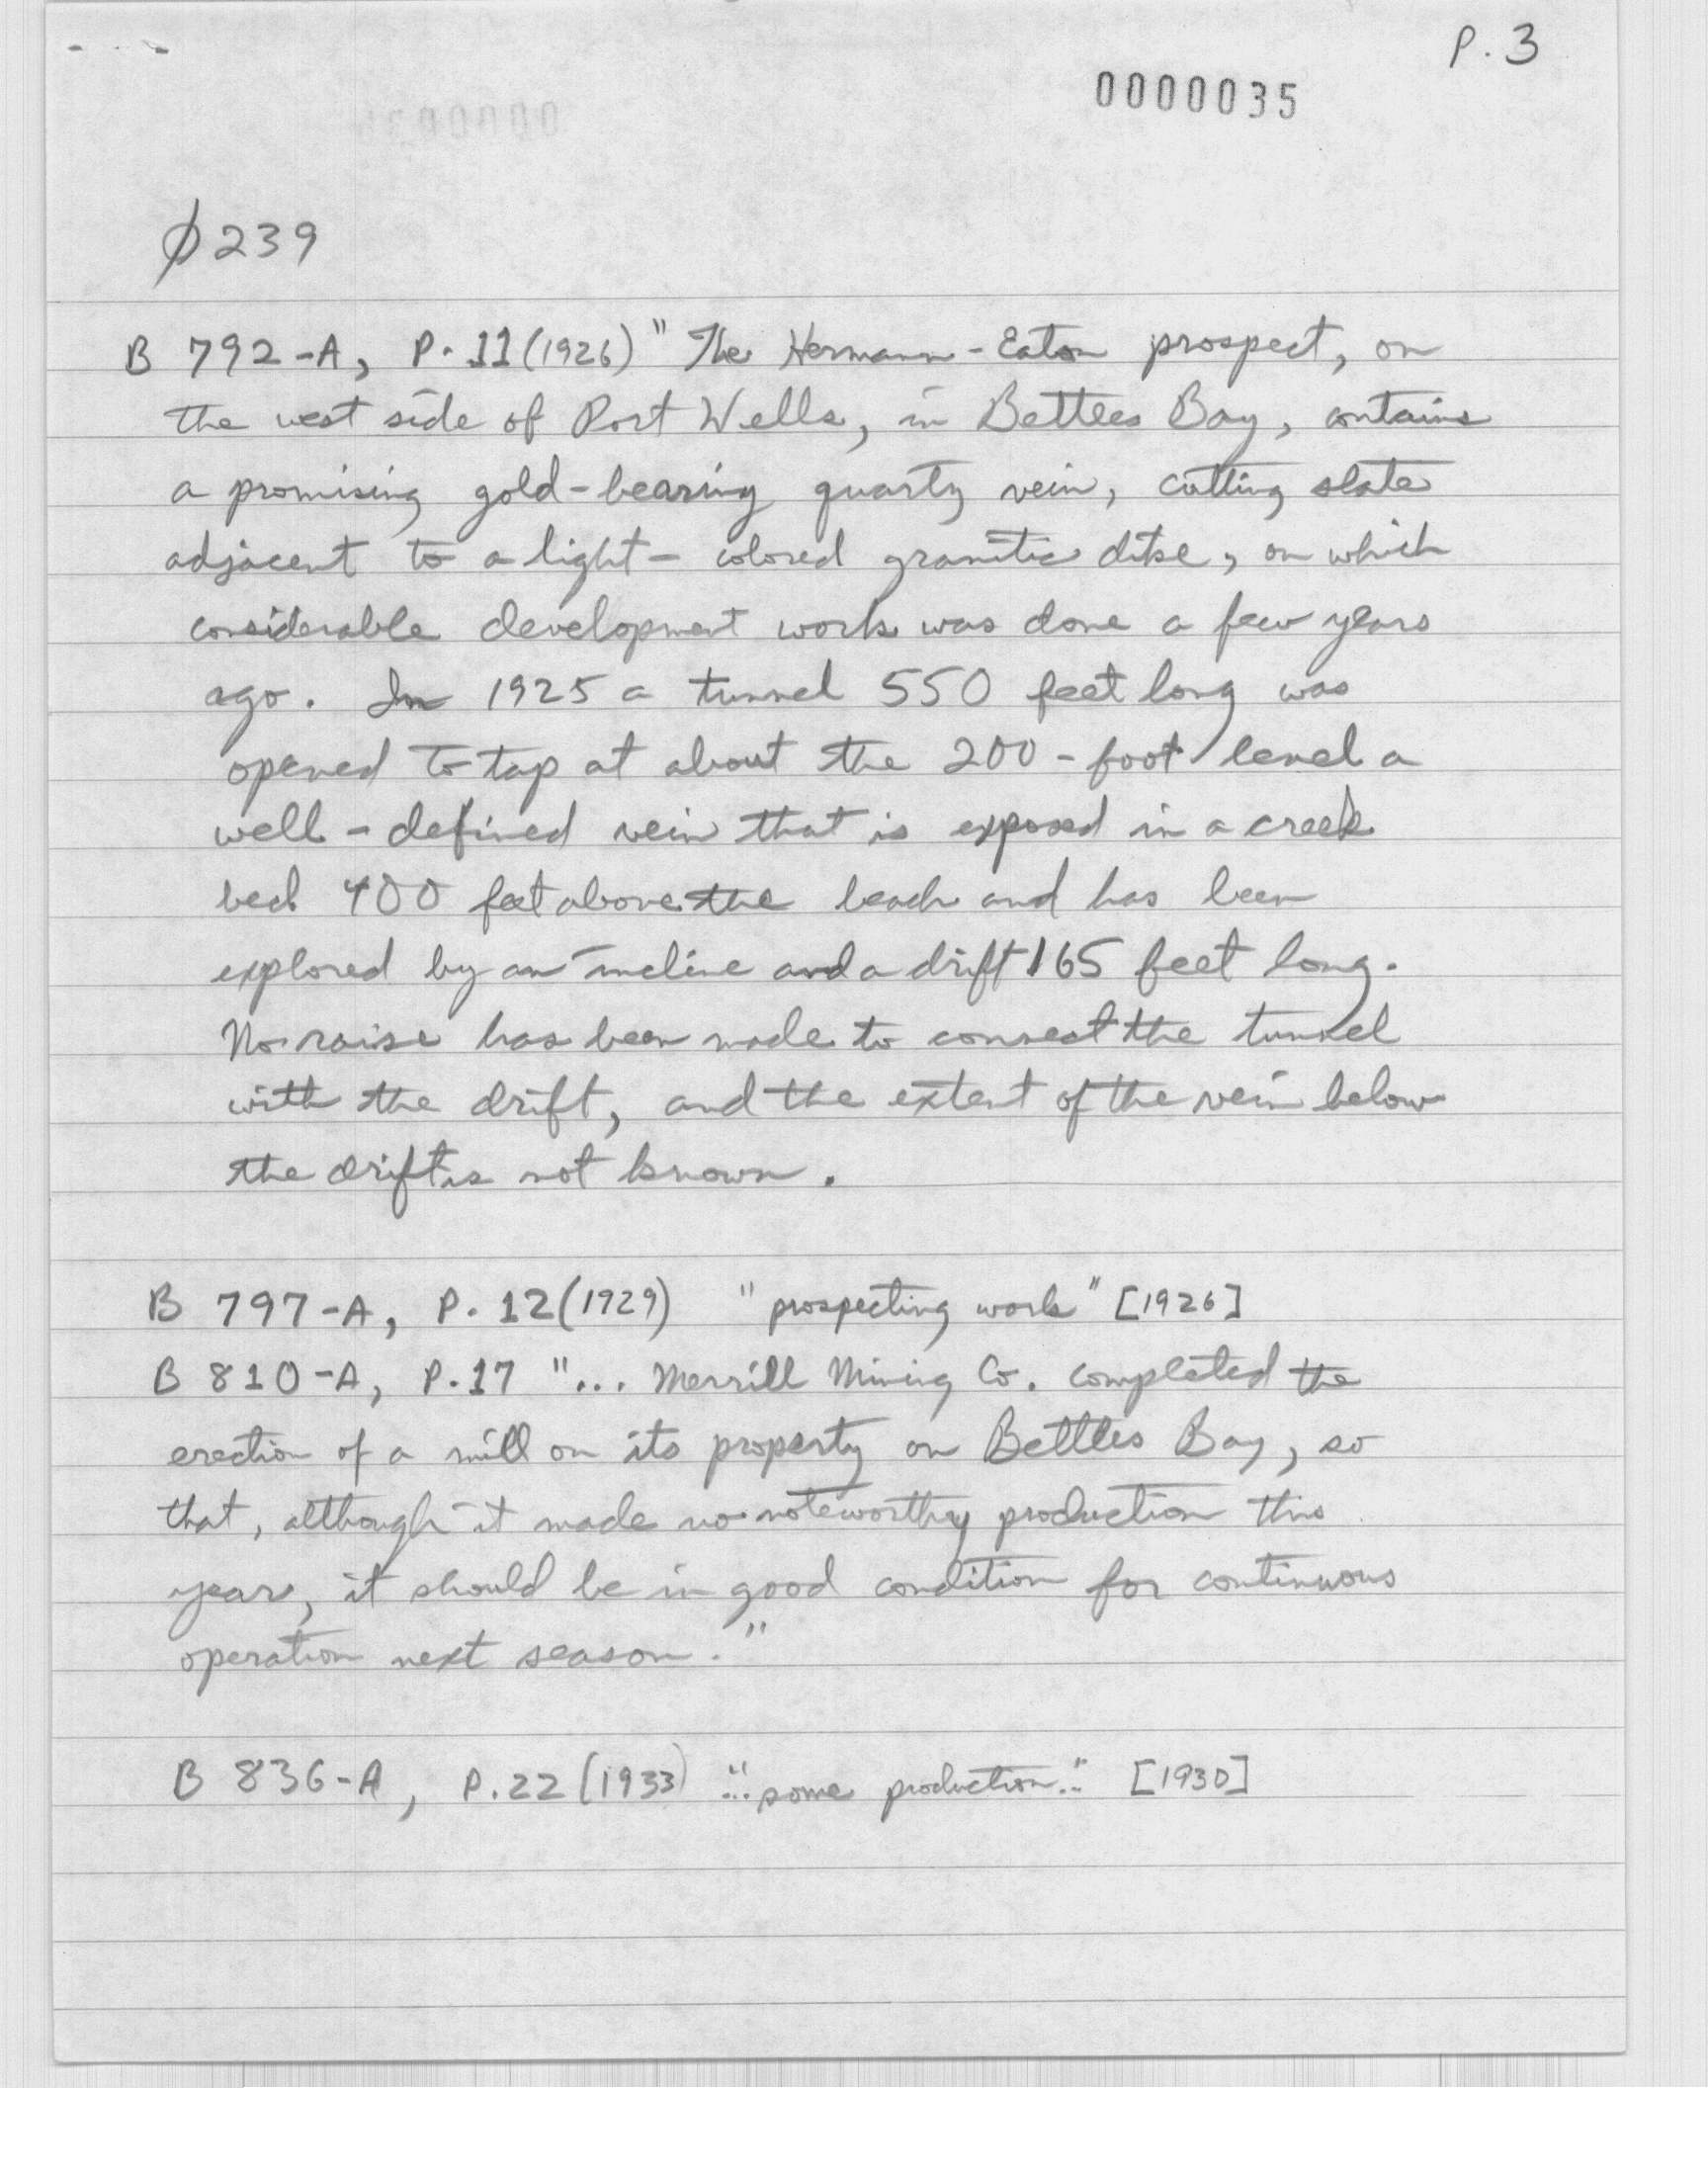 P. 3
0000035
Ø239
B 792-A, P. 11 (1926) "The Hermann-Eaton prospect, on
the west side of Port Wells, in Bettles Bay, contains
a promising gold-bearing quartz vein, cutting slate
adjacent to a light-colored granitic dike, on which
considerable development work was done a few years
ago. In 1925 a tunnel 550 feet long was
opened to tap at about the 200-foot level a
well-defined vein that is exposed in a creek
bed 400 feet above the beach and has been
explored by an incline and a drift 165 feet long.
No raise has been made to connect the tunnel
with the drift, and the extent of the vein below
the drift is not known.
B 797-A, P. 12 (1929) "prospecting work" [1926]
B 810-A, P. 17 "... Merrill Mining Co. completed the
erection of a mill on its property on Bettles Bay, so
that, although it made no noteworthy production this
year, it should be in good condition for continuous
operation next season."
B 836-A, P. 22 (1933) "...some production..." [1930]